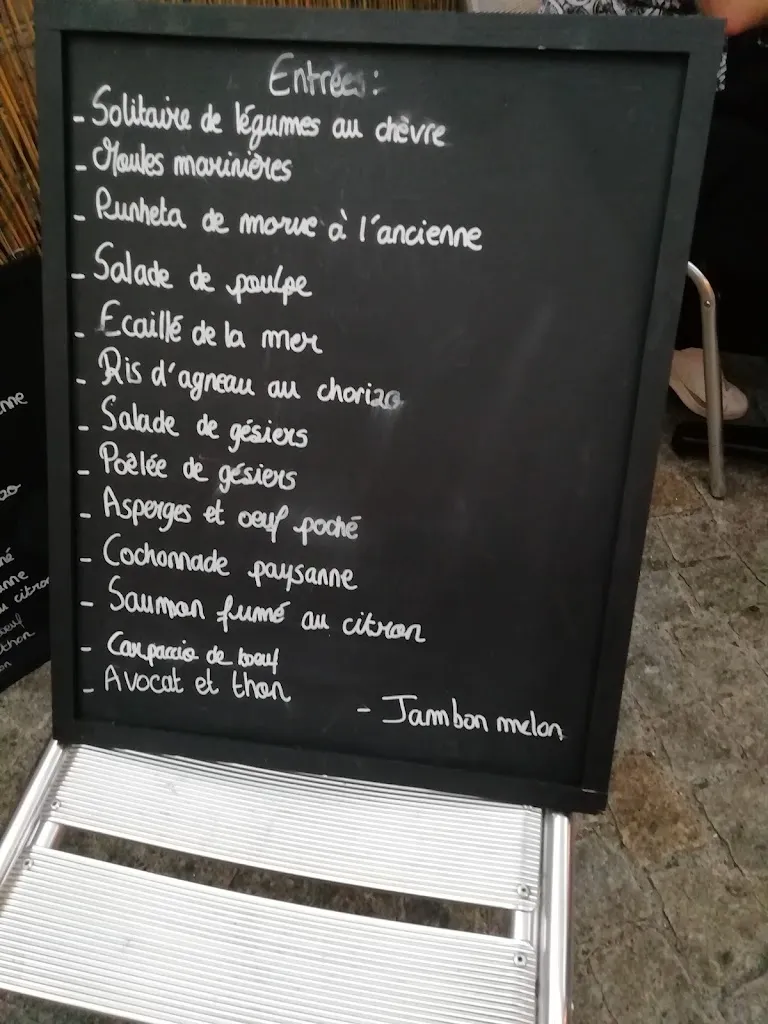 Entrées:
- Solitaire de légumes au chèvre
- Moules marinières
- Punheta de morue à l'ancienne
- Salade de poulpe
- Ecaillé de la mer
- Ris d'agneau au chorizo
- Salade de gésiers
- Poêlée de gésiers
- Asperges et oeuf poché
- Cochonnade paysanne
- Saumon fumé au citron
- Carpaccio de boeuf
- Avocat et thon
- Jambon melon